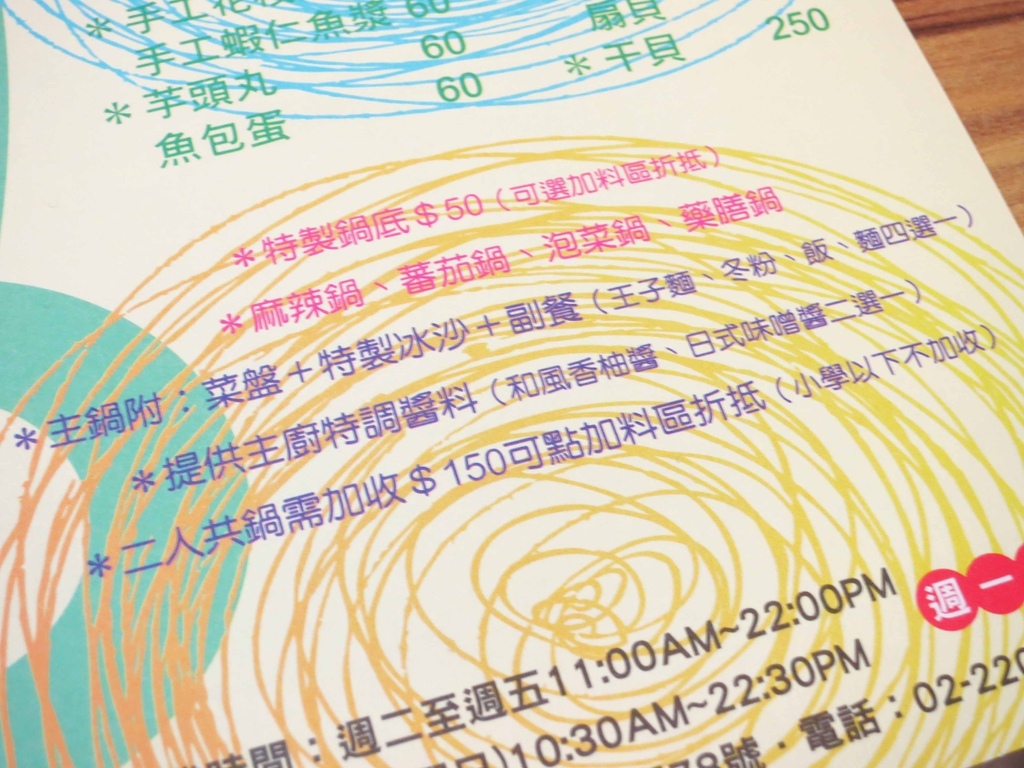 ＊手工花枝 60
手工蝦仁魚漿 60
＊芋頭丸 60
魚包蛋
扇貝 250
＊干貝
＊特製鍋底＄50（可選加料區折抵）
＊麻辣鍋、蕃茄鍋、泡菜鍋、藥膳鍋
＊主鍋附：菜盤＋特製冰沙＋副餐（王子麵、冬粉、飯、麵四選一）
＊提供主廚特調醬料（和風香柚醬、日式味噌醬二選一）
＊二人共鍋需加收＄150可點加料區折抵（小學以下不加收）
時間：週二至週五11:00AM~22:00PM 週一
日)10:30AM~22:30PM
78號．電話：02-220